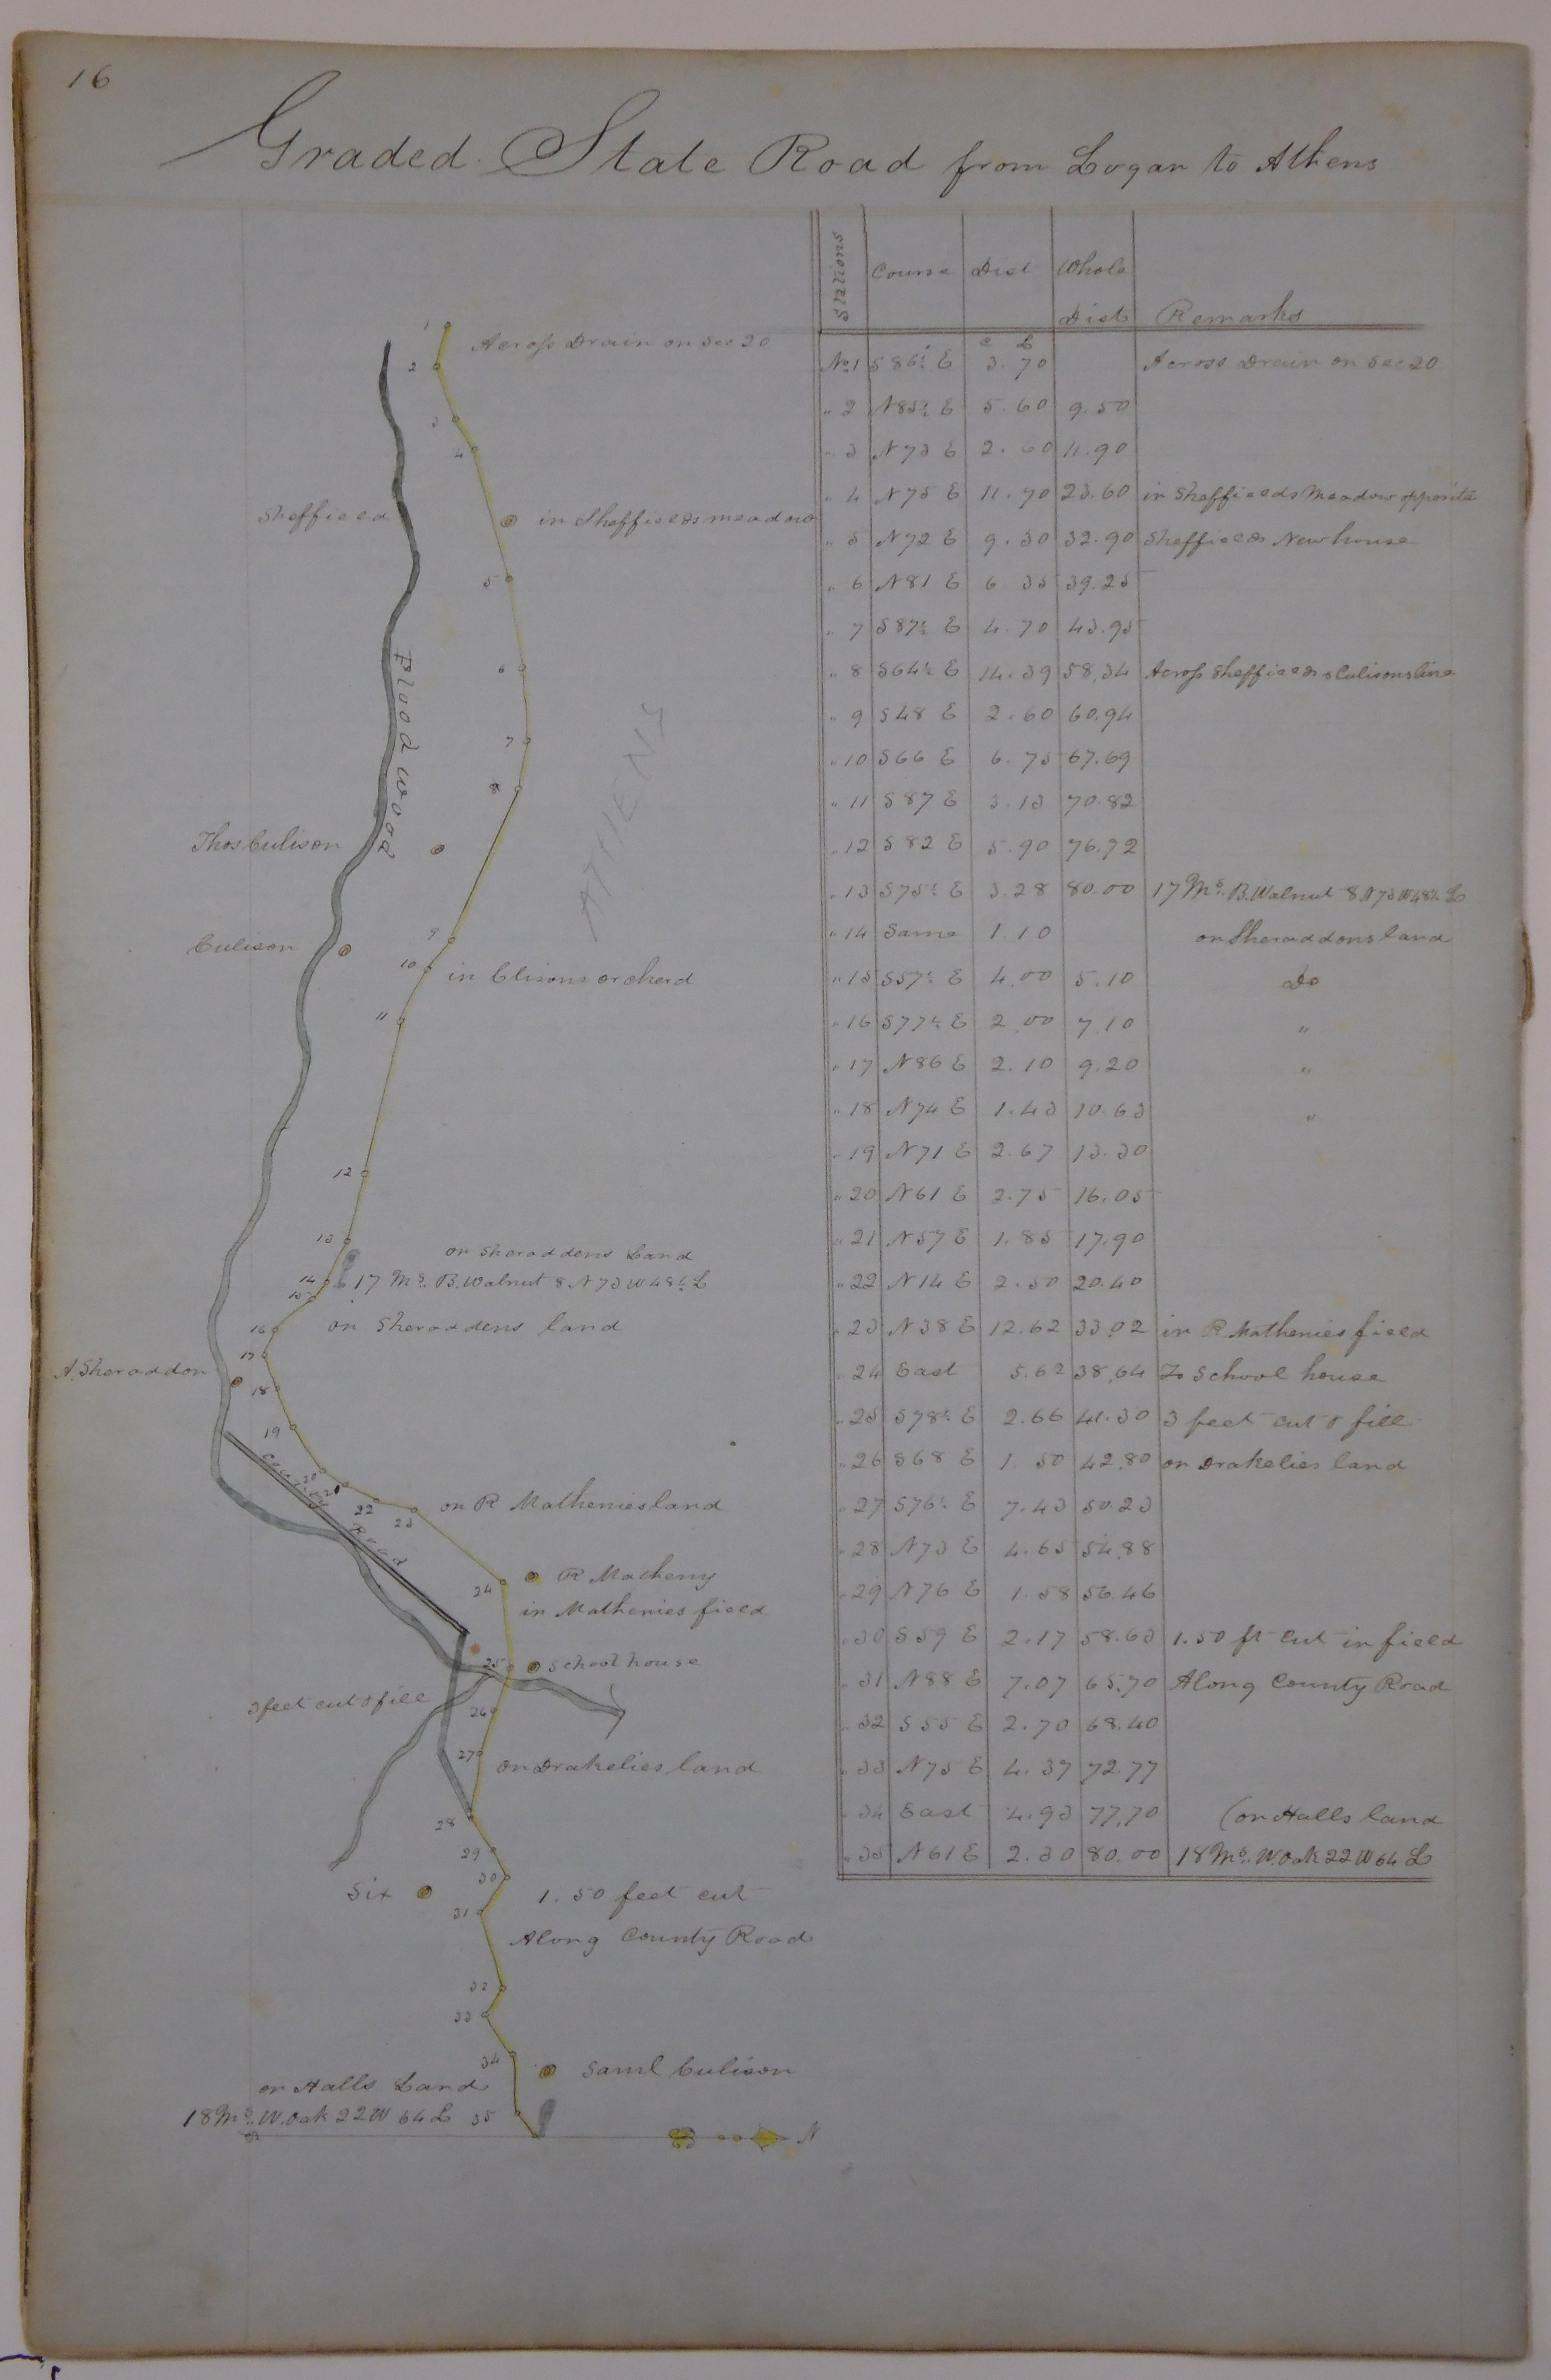 16
Graded State Road from Logan to Athens
Stations Course Dist Whole Dist Remarks
C L
No 1 S 86½ E 3.70 Across Drain on Sec 20
" 2 N 85½ E 5.60 9.50
" 3 N 73 E 2.60 11.90
" 4 N 75 E 11.70 23.60 in Sheffields Meadow opposite
" 5 N 72 E 9.30 32.90 Sheffields New house
" 6 N 81 E 6.35 39.25
" 7 S 87½ E 4.70 43.95
" 8 S 64½ E 14.39 58.34 Across Sheffields & Culisons line
" 9 S 48 E 2.60 60.94
" 10 S 66 E 6.75 67.69
" 11 S 87 E 3.13 70.82
" 12 S 82 E 5.90 76.72
" 13 S 75½ E 3.28 80.00 17 Ms. B. Walnut 8 N 73 W 48½ L
" 14 Same 1.10 on Sheraddons land
" 15 S 57½ E 4.00 5.10 Do
" 16 S 77½ E 2.00 7.10 "
" 17 N 86 E 2.10 9.20 "
" 18 N 74 E 1.43 10.63 "
" 19 N 71 E 2.67 13.30
" 20 N 61 E 2.75 16.05
" 21 N 57 E 1.85 17.90
" 22 N 14 E 2.50 20.40
" 23 N 38 E 12.62 33.02 in R. Mathenies field
" 24 East 5.62 38.64 To School house
" 25 S 78½ E 2.66 41.30 3 feet cut & fill
" 26 S 68 E 1.50 42.80 on Drakelies land
" 27 S 76½ E 7.43 50.23
" 28 N 73 E 4.65 54.88
" 29 N 76 E 1.58 56.46
" 30 S 59 E 2.17 58.63 1.50 ft cut in field
" 31 N 88 E 7.07 65.70 Along County Road
" 32 S 55 E 2.70 68.40
" 33 N 75 E 4.37 72.77
" 34 East 4.93 77.70 (on Halls land
" 35 N 61 E 2.30 80.00 18 Ms. W. Oak 22 W 64 L
1
Across Drain on Sec 20
2
3
4
Sheffield
in Sheffields meadow
5
Floodwood
6
7
ATHENS
8
Thos Culison
9
Culison
10
in Clisons orcherd
11
12
13
on Sheraddens Land
14
17 Ms. B. Walnut 8 N 73 W 48½ L
15
16
on Sheraddens land
17
A. Sheraddon
18
19
County Road
20
21
22
23
on R Mathenies land
24
R Matheny
in Mathenies field
25
School house
3 feet cut & fill
26
27
on Drakelies land
28
29
30
Six
1.50 feet cut
31
Along County Road
32
33
34
Saml Culison
on Halls Land
18 Ms. W. Oak 22 W 64 L
35
S
N